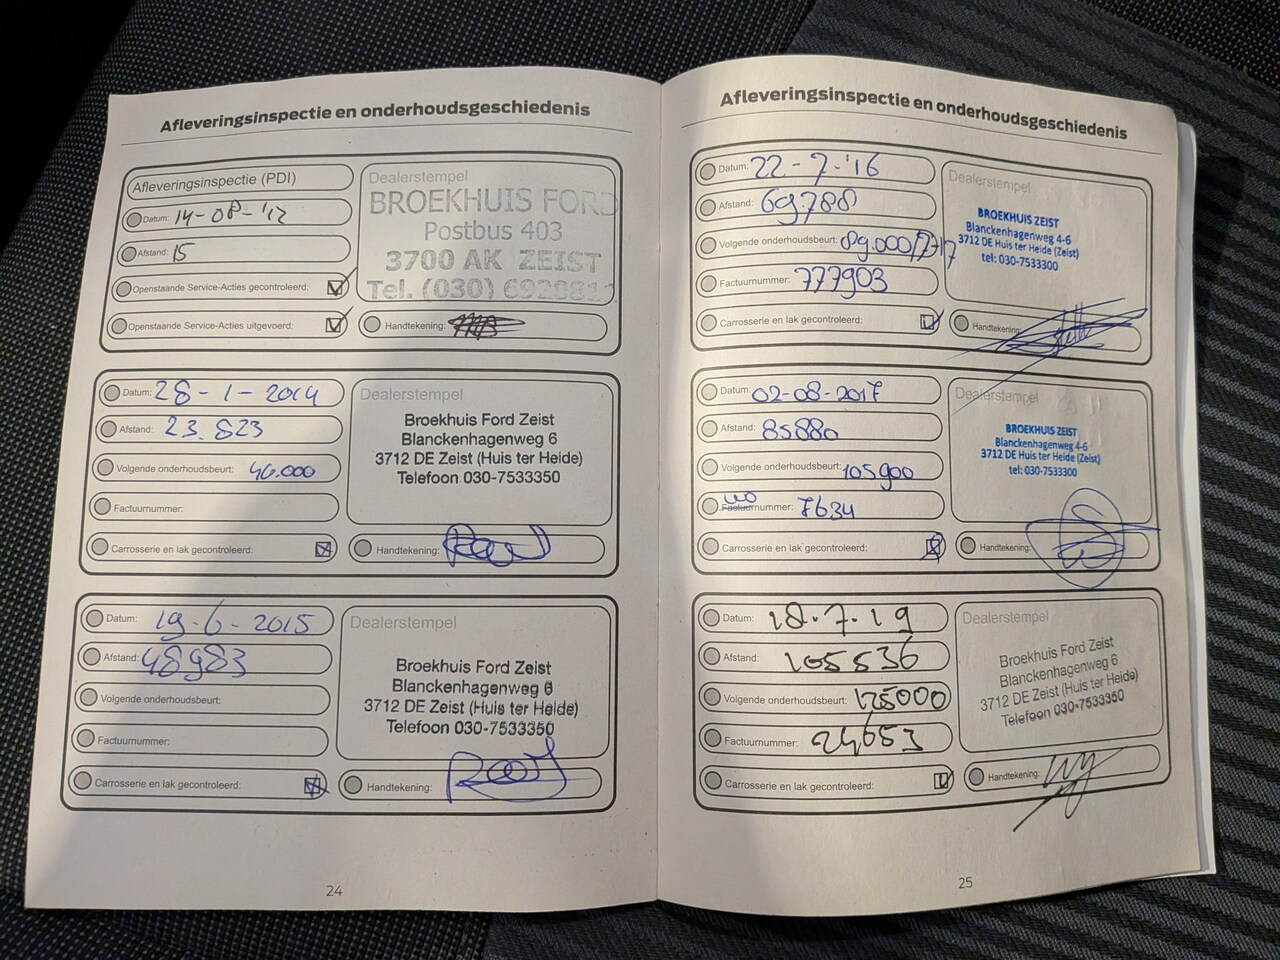 Afleveringsinspectie en onderhoudsgeschiedenis
Afleveringsinspectie (PDI)
Datum: 14-08-'12
Afstand: 15
Openstaande Service-Acties gecontroleerd:
Openstaande Service-Acties uitgevoerd:
Dealerstempel
BROEKHUIS FORD
Postbus 403
3700 AK ZEIST
Tel. (030) 6920811
Handtekening:
Datum: 28-1-2014
Afstand: 23.823
Volgende onderhoudsbeurt: 46.000
Factuurnummer:
Carrosserie en lak gecontroleerd:
Dealerstempel
Broekhuis Ford Zeist
Blanckenhagenweg 6
3712 DE Zeist (Huis ter Heide)
Telefoon 030-7533350
Handtekening:
Datum: 19-6-2015
Afstand: 48983
Volgende onderhoudsbeurt:
Factuurnummer:
Carrosserie en lak gecontroleerd:
Dealerstempel
Broekhuis Ford Zeist
Blanckenhagenweg 6
3712 DE Zeist (Huis ter Heide)
Telefoon 030-7533350
Handtekening:
24
Afleveringsinspectie en onderhoudsgeschiedenis
Datum: 22-7-'16
Afstand: 69.788
Volgende onderhoudsbeurt: 89.000/7-17
Factuurnummer: 777903
Carrosserie en lak gecontroleerd:
Dealerstempel
BROEKHUIS ZEIST
Blanckenhagenweg 4-6
3712 DE Huis ter Heide (Zeist)
tel: 030-7533300
Handtekening:
Datum: 02-08-2017
Afstand: 85880
Volgende onderhoudsbeurt: 105900
WO
Factuurnummer: 7634
Carrosserie en lak gecontroleerd:
Dealerstempel
BROEKHUIS ZEIST
Blanckenhagenweg 4-6
3712 DE Huis ter Heide (Zeist)
tel: 030-7533300
Handtekening:
Datum: 18.7.19
Afstand: 105536
Volgende onderhoudsbeurt: 125000
Factuurnummer: 24653
Carrosserie en lak gecontroleerd:
Dealerstempel
Broekhuis Ford Zeist
Blanckenhagenweg 6
3712 DE Zeist (Huis ter Heide)
Telefoon 030-7533350
Handtekening:
25